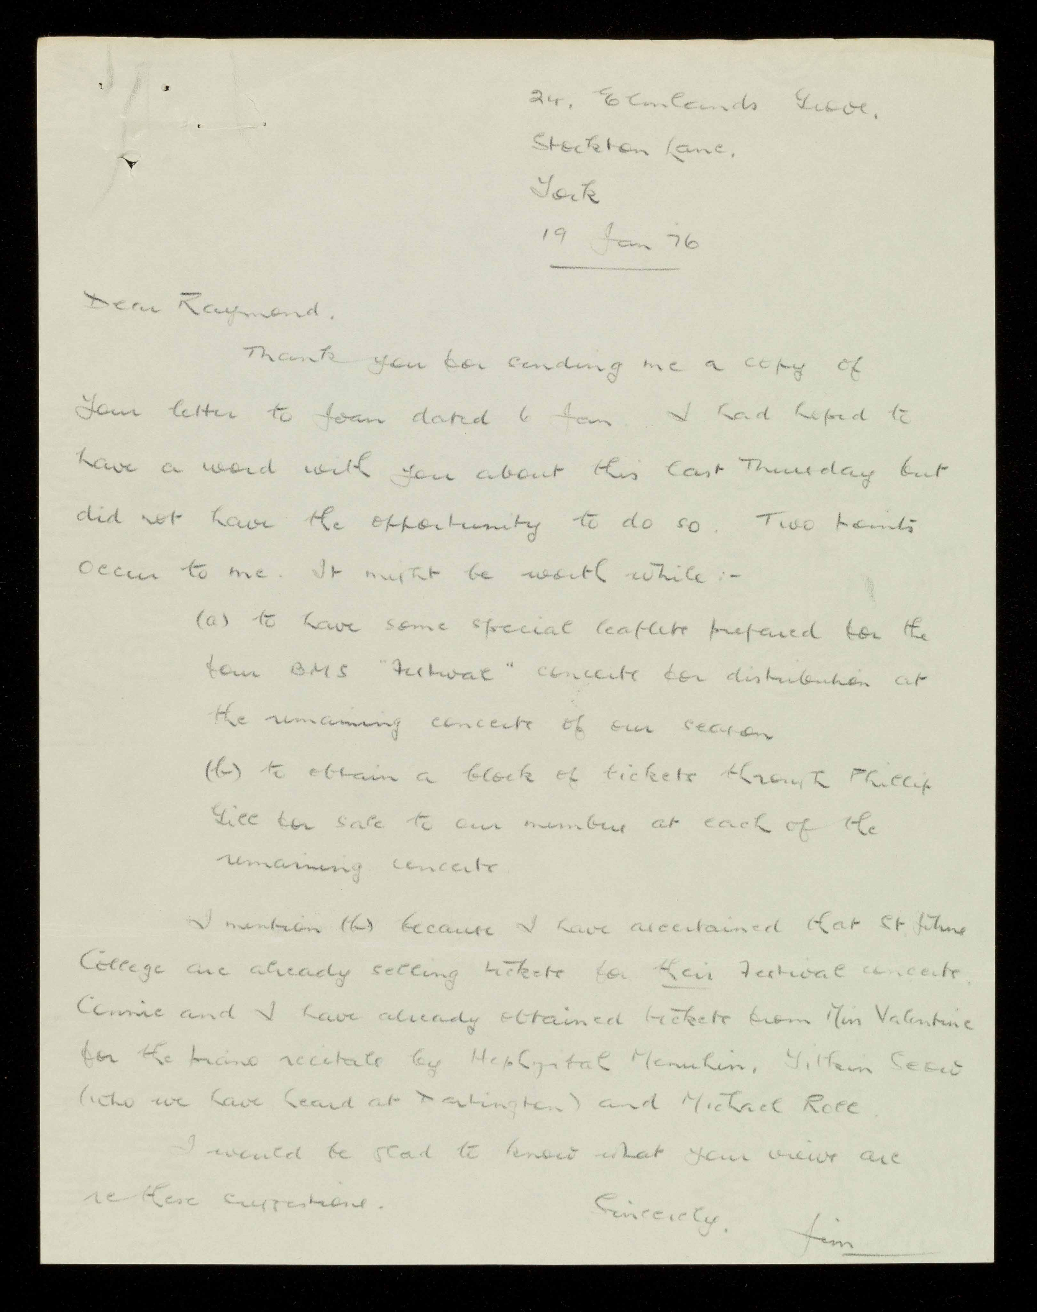 24, Elmlands Grove,
Stockton Lane,
York
19 Jan 76
Dear Raymond,
Thank you for sending me a copy of
your letter to Joan dated 6 Jan. I had hoped to
have a word with you about this last Thursday but
did not have the opportunity to do so. Two points
occur to me. It might be worth while :-
(a) to have some special leaflets prepared for the
four BMS "Festival" concerts for distribution at
the remaining concerts of our season
(b) to obtain a block of tickets through Phillip
Gill for sale to our members at each of the
remaining concerts
I mention (b) because I have ascertained that St Johns
College are already selling tickets for their Festival concerts.
Connie and I have already obtained tickets from Miss Valentine
for the piano recitals by Hephzibah Menuhin, Yitkin Seow
(who we have heard at Dartington) and Michael Roll.
I would be glad to know what your views are
re these suggestions.
Sincerely,
Jim